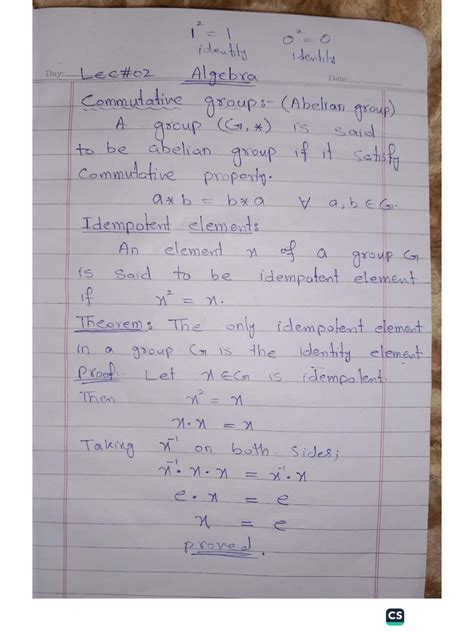 1² = 1 0² = 0
identity identity
Day: Lec#02 Algebra Date:
Commutative groups:- (Abelian group)
A group (G, *) is said
to be abelian group if it satisfy
Commutative property.
a * b = b * a ∀ a, b ∈ G.
Idempotent element:
An element x of a group G
is said to be idempotent element
if x² = x.
Theorem: The only idempotent element
in a group G is the identity element.
Proof:- Let x ∈ G is idempotent.
Then x² = x
x·x = x
Taking x⁻¹ on both sides;
x⁻¹·x·x = x⁻¹·x
e·x = e
x = e
proved.
CS